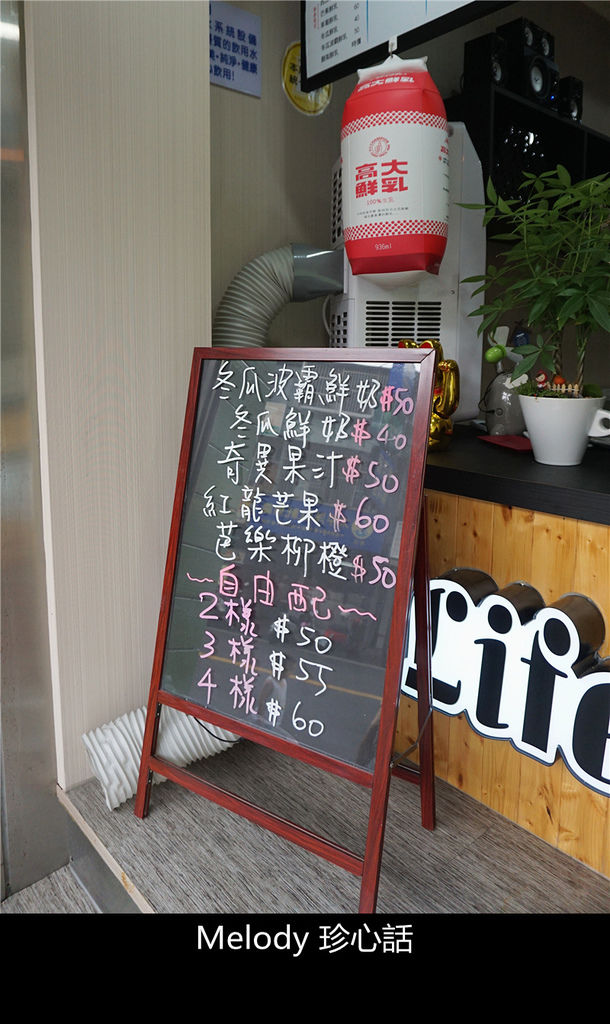 系統設備
質的飲用水
純淨·健康
心飲用!
高大鮮乳
高大
鮮乳
100%生乳
936ml
冬瓜波霸鮮奶$50
冬瓜鮮奶$40
奇異果汁$50
紅龍芒果$60
芭樂柳橙$50
~自由配~
2樣 $50
3樣 $55
4樣 $60
Life
Melody 珍心話